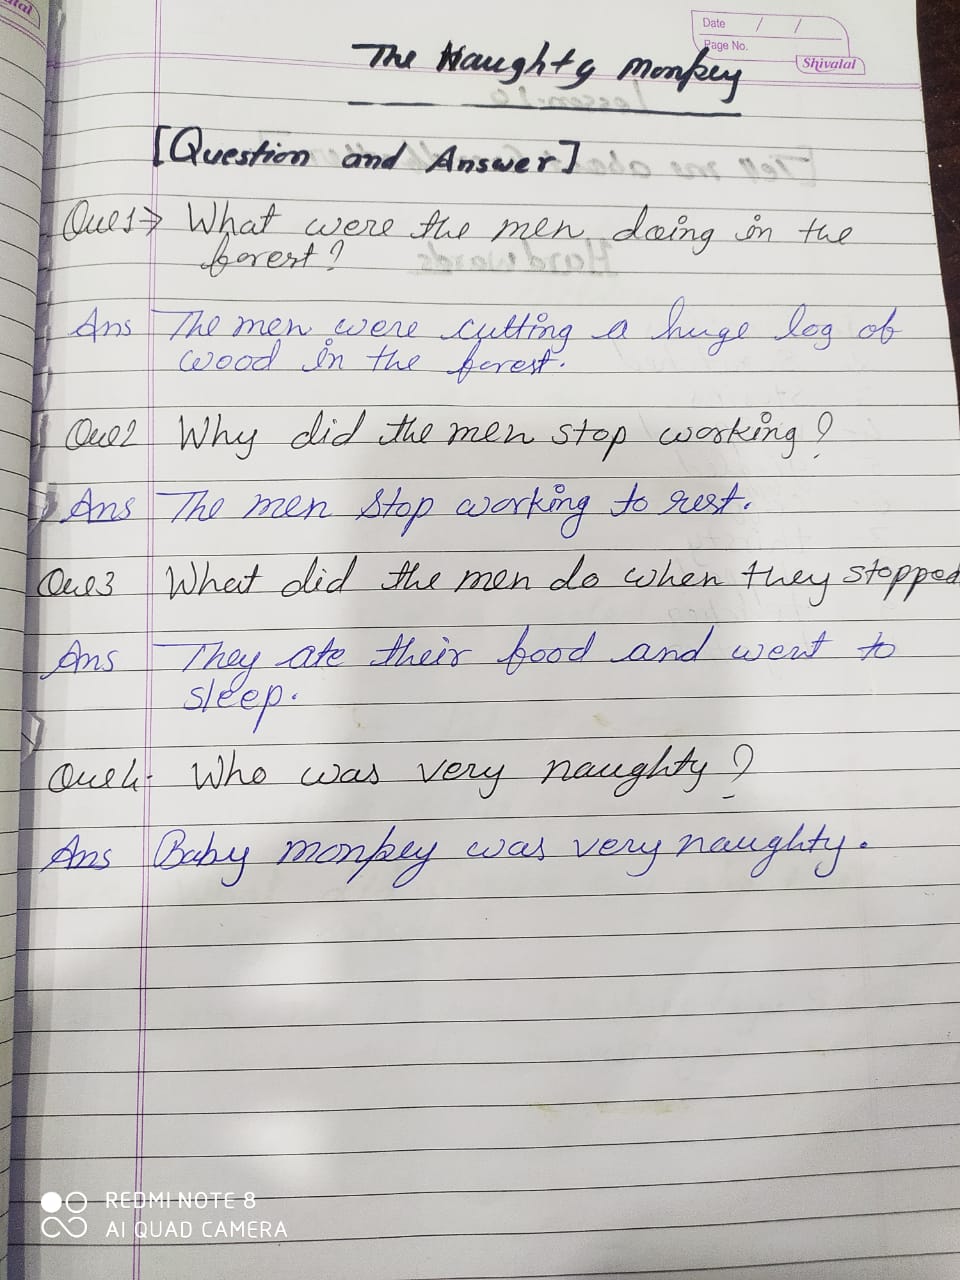 Date / /
Page No.
Shivalal
The Naughty Monkey
[Question and Answer]
Ques1→ What were the men doing in the
forest?
Ans The men were cutting a huge log of
wood in the forest.
Que2 Why did the men stop working?
Ans The men stop working to rest.
Que3 What did the men do when they stopped
Ans They ate their food and went to
sleep.
Que4. Who was very naughty?
Ans Baby monkey was very naughty.
REDMI NOTE 8
AI QUAD CAMERA